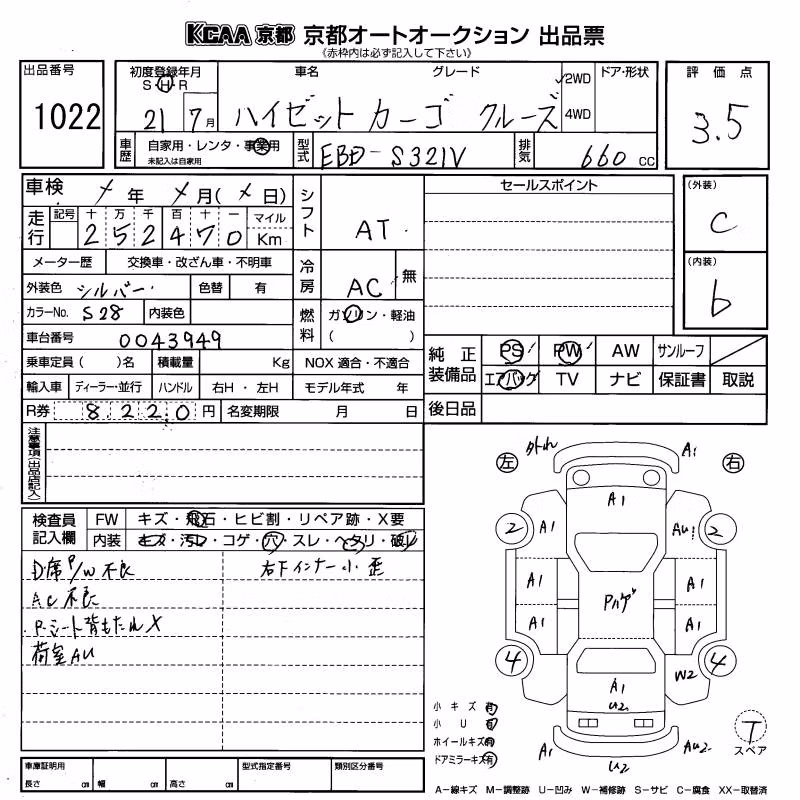 KCAA 京都 京都オートオークション 出品票
《赤枠内は必ず記入して下さい》
出品番号
1022
初度登録年月
S・H・R
21 7月
車名 グレード
ハイゼット カーゴ クルーズ
ドア・形状
2WD
4WD
評価点
3.5
車歴
自家用・レンタ・事業用
未記入は自家用
型式
EBD-S321V
排気
660 cc
車検 メ 年 メ 月( メ 日)
走行
記号 十 万 千 百 十 一 マイル
2 5 2 4 7 0 Km
シフト
AT
メーター歴 交換車・改ざん車・不明車
冷房
AC 無
外装色 シルバー 色替 有
カラーNo. S28 内装色
燃料
ガソリン・軽油
( )
車台番号 0043949
乗車定員 ( )名 積載量 Kg NOX 適合・不適合
輸入車 ディーラー・並行 ハンドル 右H・左H モデル年式 年
R券 8 2 2 0 円 名変期限 月 日
セールスポイント
(外装)
C
(内装)
b
純正装備品
PS PW AW サンルーフ
エアバッグ TV ナビ 保証書 取説
後日品
注意事項(出品店記入)
検査員記入欄
FW キズ・飛石・ヒビ割・リペア跡・X要
内装 キズ・汚レ・コゲ・穴・スレ・ヘタリ・破レ
D席P/W不良
AC不良
P.シート背もたれX
荷室AU
右下インナー小歪
左 右
外れ A1
A1
2 A1 AU1 2
A1 A1
Pハゲ
A1 A1
4 W2 4
A1
U2
A1 U2 AU2
小キズ 有
小U 有
ホイールキズ 有
ドアミラーキズ 有
T
スペア
車庫証明用
長さ cm 幅 cm 高さ cm
型式指定番号
類別区分番号
A−線キズ M−調整跡 U−凹み W−補修跡 S−サビ C−腐食 XX−取替済